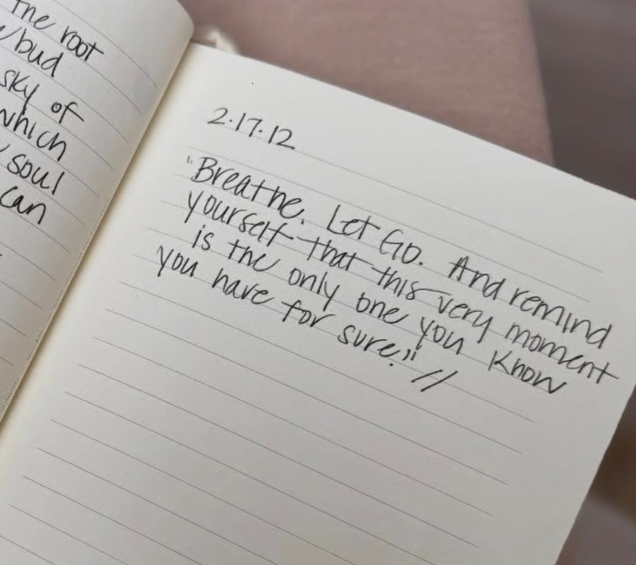 The root
bud
sky of
which
soul
can
2.17.12
"Breathe. Let Go. And remind
yourself that this very moment
is the only one you know
you have for sure." //